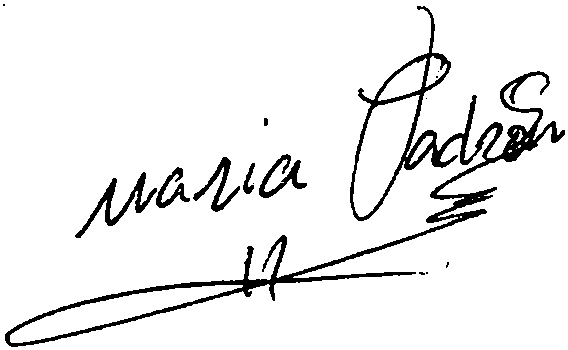 Maria Padrón